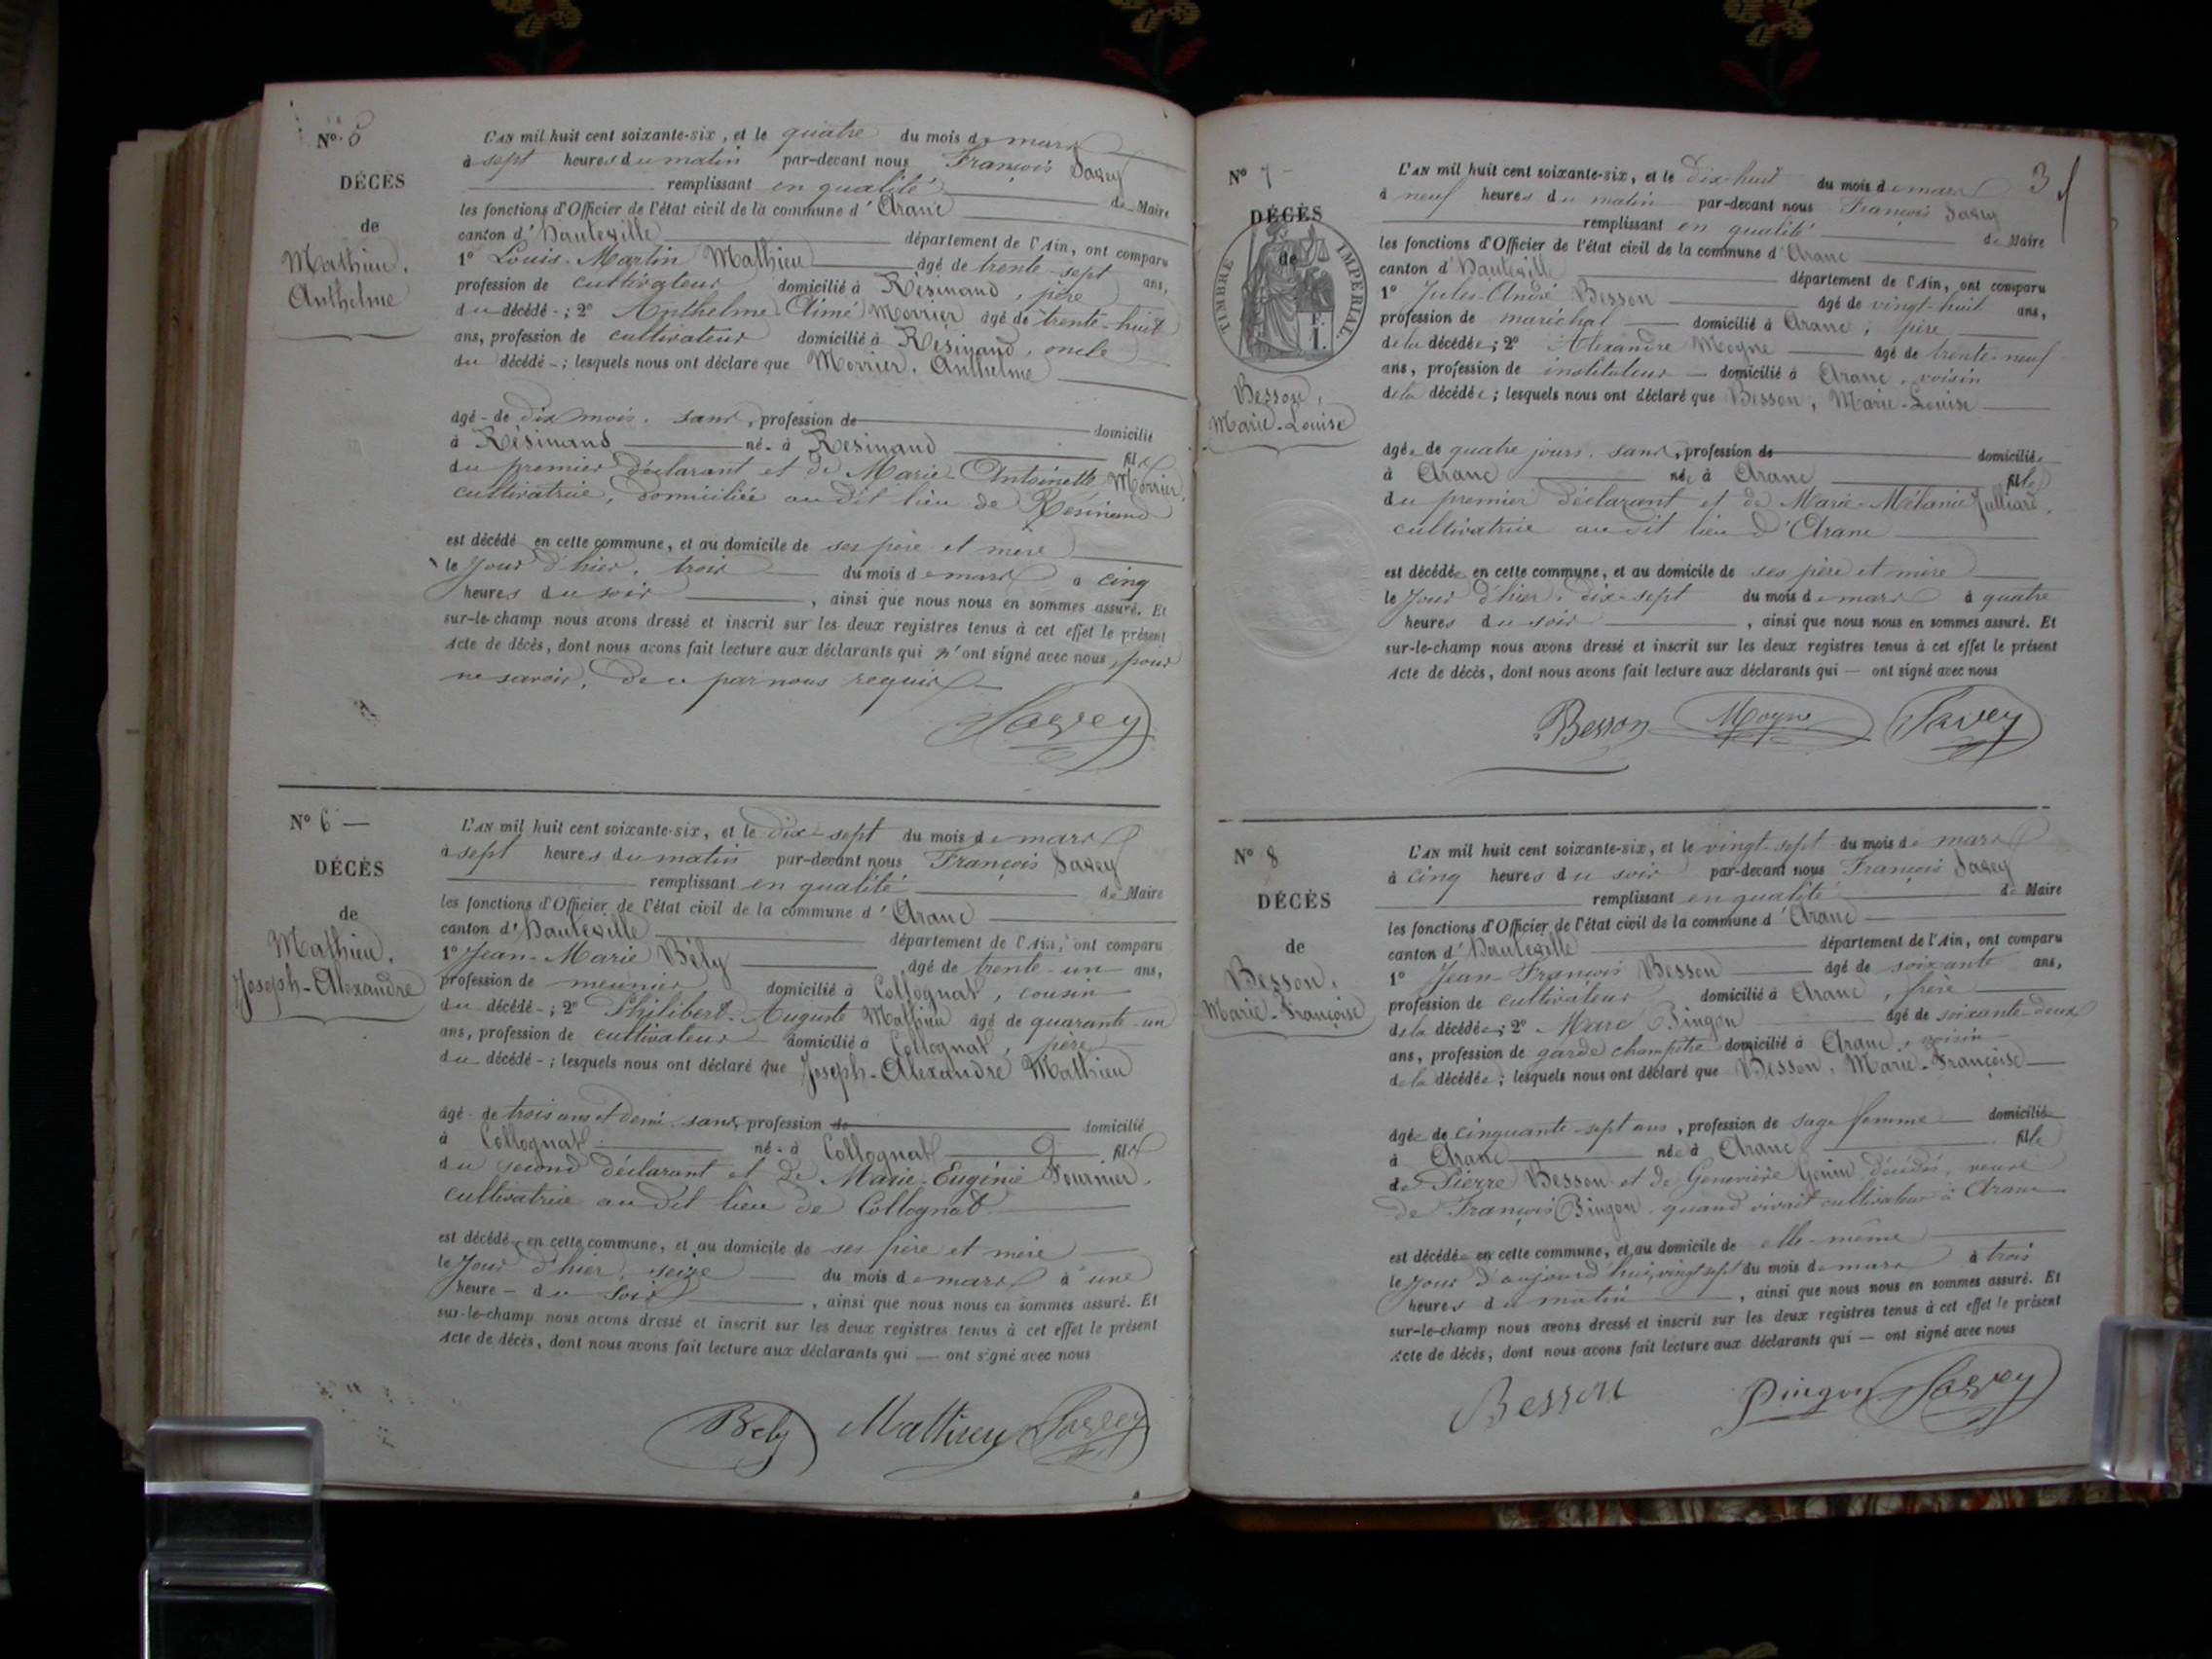 Nº 5
DÉCÈS
de
Mathieu,
Anthelme
L'AN mil huit cent soixante-six, et le quatre du mois de mars
à sept heures du matin par-devant nous François Savey
remplissant en qualité de Maire
les fonctions d'Officier de l'état civil de la commune d'Aranc
canton d'Hauteville département de l'Ain, ont comparu
1º Louis-Martin Mathieu âgé de trente-sept ans,
profession de cultivateur domicilié à Résinand, père
du décédé-; 2º Anthelme Aimé Morrier âgé de trente-huit
ans, profession de cultivateur domicilié à Résinand, oncle
du décédé-; lesquels nous ont déclaré que Morrier, Anthelme
âgé-de dix mois, sans, profession de domicilié
à Résinand né-à Résinand fils
du premier déclarant et de Marie-Antoinette Morrier,
cultivatrice, domiciliée audit lieu de Résinand
est décédé en cette commune, et au domicile de ses père et mère
le jour d'hier, trois du mois de mars à cinq
heures du soir, ainsi que nous nous en sommes assuré. Et
sur-le-champ nous avons dressé et inscrit sur les deux registres tenus à cet effet le présent
Acte de décès, dont nous avons fait lecture aux déclarants qui n'ont signé avec nous, pour
ne savoir, de ce par nous requis
Savey
Nº 6
DÉCÈS
de
Mathieu,
Joseph-Alexandre
L'AN mil huit cent soixante-six, et le dix-sept du mois de mars
à sept heures du matin par-devant nous François Savey
remplissant en qualité de Maire
les fonctions d'Officier de l'état civil de la commune d'Aranc
canton d'Hauteville département de l'Ain, ont comparu
1º Jean-Marie Bély âgé de trente-un ans,
profession de meunier domicilié à Collognat, cousin
du décédé-; 2º Philibert-Auguste Mathieu âgé de quarante-un
ans, profession de cultivateur domicilié à Collognat, père
du décédé-; lesquels nous ont déclaré que Joseph-Alexandre Mathieu
âgé-de trois ans et demi, sans, profession de domicilié
à Collognat né-à Collognat fils
du second déclarant et de Marie-Eugénie Fournier,
cultivatrice audit lieu de Collognat
est décédé en cette commune, et au domicile de ses père et mère
le jour d'hier, seize du mois de mars à une
heure - du soir, ainsi que nous nous en sommes assuré. Et
sur-le-champ nous avons dressé et inscrit sur les deux registres tenus à cet effet le présent
Acte de décès, dont nous avons fait lecture aux déclarants qui — ont signé avec nous
Bely Mathieu Savey
3
Nº 7
DÉCÈS
de
TIMBRE IMPÉRIAL
F.
1.
Besson,
Marie-Louise
L'AN mil huit cent soixante-six, et le dix-huit du mois de mars
à neuf heures du matin par-devant nous François Savey
remplissant en qualité de Maire
les fonctions d'Officier de l'état civil de la commune d'Aranc
canton d'Hauteville département de l'Ain, ont comparu
1º Jules-André Besson âgé de vingt-huit ans,
profession de maréchal domicilié à Aranc, père
de la décédée; 2º Alexandre Moyne âgé de trente-neuf
ans, profession de instituteur domicilié à Aranc, voisin
de la décédée; lesquels nous ont déclaré que Besson, Marie-Louise
âgée de quatre jours, sans, profession de domiciliée
à Aranc née à Aranc fille
du premier déclarant et de Marie-Mélanie Julliard,
cultivatrice audit lieu d'Aranc
est décédée en cette commune, et au domicile de ses père et mère
le jour d'hier, dix-sept du mois de mars à quatre
heures du soir, ainsi que nous nous en sommes assuré. Et
sur-le-champ nous avons dressé et inscrit sur les deux registres tenus à cet effet le présent
Acte de décès, dont nous avons fait lecture aux déclarants qui — ont signé avec nous
Besson Moyne Savey
Nº 8
DÉCÈS
de
Besson,
Marie-Françoise
L'AN mil huit cent soixante-six, et le vingt-sept du mois de mars
à cinq heures du soir par-devant nous François Savey
remplissant en qualité de Maire
les fonctions d'Officier de l'état civil de la commune d'Aranc
canton d'Hauteville département de l'Ain, ont comparu
1º Jean-François Besson âgé de soixante ans,
profession de cultivateur domicilié à Aranc, frère
de la décédée; 2º Marc Pingon âgé de soixante-deux
ans, profession de garde champêtre domicilié à Aranc, voisin
de la décédée; lesquels nous ont déclaré que Besson, Marie-Françoise
âgée de cinquante-sept ans, profession de sage femme domiciliée
à Aranc née à Aranc fille
de Pierre Besson et de Geneviève Genin, décédés, veuve
de François Pingon, quand vivait cultivateur à Aranc
est décédée en cette commune, et au domicile de elle-même
le jour d'aujourd'hui, vingt sept du mois de mars à trois
heures du matin, ainsi que nous nous en sommes assuré. Et
sur-le-champ nous avons dressé et inscrit sur les deux registres tenus à cet effet le présent
Acte de décès, dont nous avons fait lecture aux déclarants qui — ont signé avec nous
Besson Pingon Savey